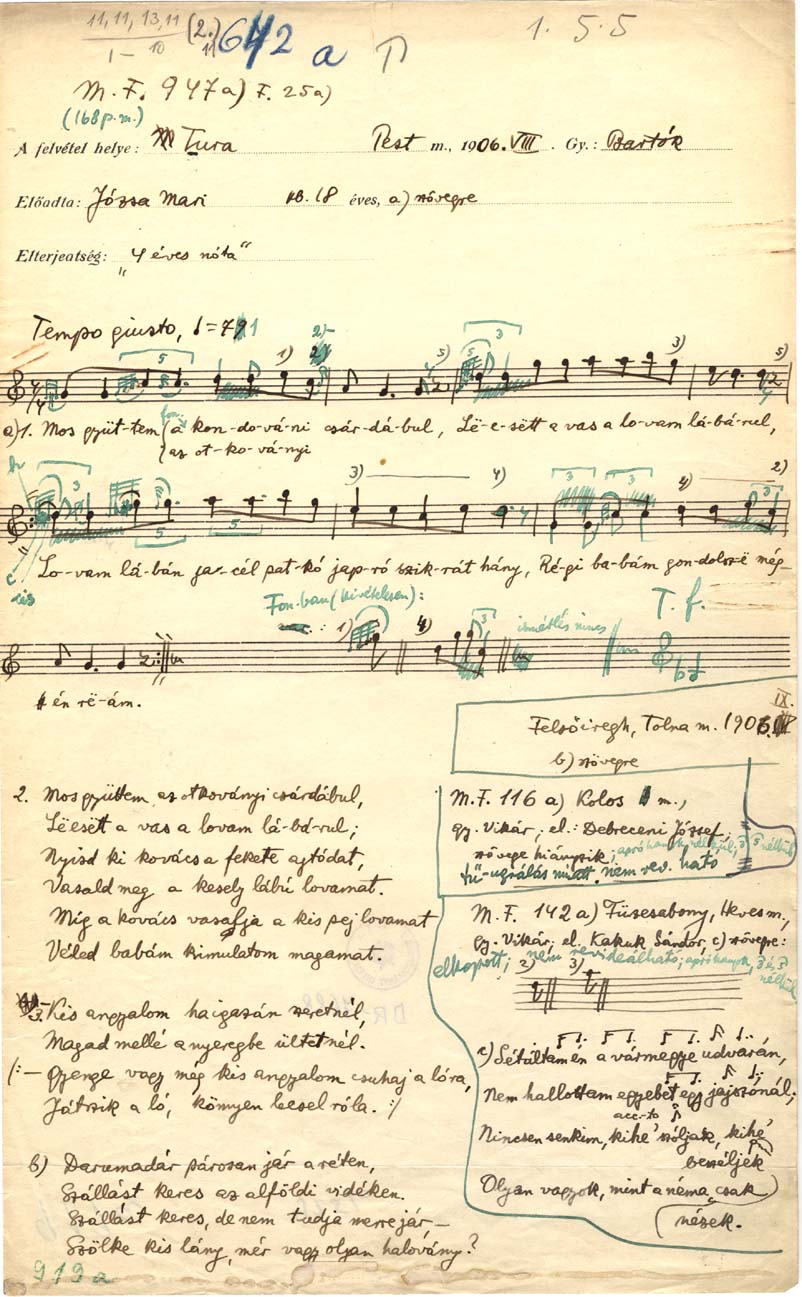 11, 11, 13, 11 (2.) 642 a 1. 5. 5
1 – 10 11
M. F. 947a) F. 25a)
(168 p. m.)
A felvétel helye: Tura Pest m., 1906. VIII. Gy.: Bartók
Előadta: Józsa Mari kb. 18 éves, a) szövegre
Elterjedtség: "4 éves nóta"
Tempo giusto,
a) 1. Mos gyüt-tem a kon-do-vá-ni csár-dá-bul, Lë-e-sëtt a vas a lo-vam lá-bá-rul,
az ot-ko-vá-nyi
Lo-vam lá-bán ja-cél pat-kó jap-ró szik-rát hány, Ré-gi ba-bám gon-dolsz-ë még-
Fon-ban (kivételesen): T. f.
ismétlés nincs
én rë-ám.
Felsőiregh, Tolna m. 1906. IX.
b) szövegre
2. Mos gyüttem az otkoványi csárdábul,
Lëesëtt a vas a lovam lá-bá-rul;
Nyisd ki kovács a fekete ajtódat,
Vasald meg a kesely lábú lovamat.
Míg a kovács vasalja a kis pej lovamat
Véled babám kimulatom magamat.
M. F. 116 a) Kolos m.,
gy. Vikár; el.: Debreceni József;
szövege hiányzik; apró hangok nélkül, 3 5 nélkül
tű-ugrálás miatt nem rev. ható
M. F. 142 a) Füzesabony, Heves m.,
gy. Vikár; el. Kakuk Sándor, c) szövegre:
elkopott; nem revideálható; apró hangok, 3 és 5 nélkül
2) 3)
3. Kis angyalom ha igazán szeretnél,
Magad mellé a nyeregbe ültetnél.
/: – Gyenge vagy még kis angyalom csuhaj a lóra,
Játszik a ló, könyen leesel róla. :/
c) Sétáltam én a vármegye udvarán,
Nem hallottam egyebet egy jajszónál;
Nincsen senkim, kihe' szóljak, kihe'
beszéljek
Olyan vagyok, mint a néma, csak
nézek.
b) Darumadár párosan jár a réten,
Szállást keres az alföldi vidéken.
Szállást keres, de nem tudja merre jár, –
Szőlke kis lány, mér vagy olyan halovány?
919a